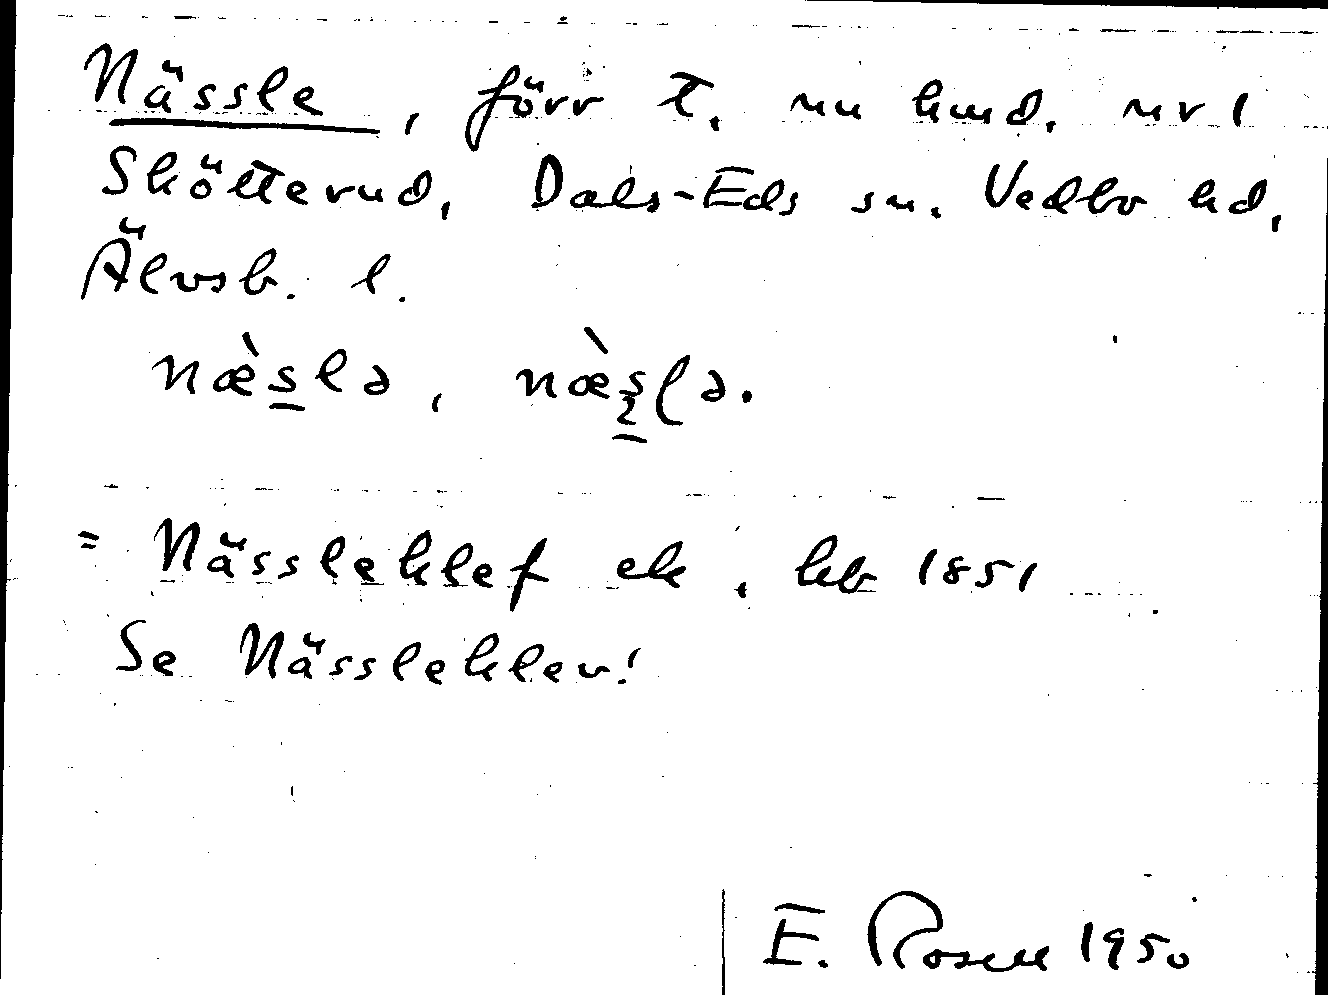 Nässle, förr t. nu hmd. nr 1
Skötterud, Dals-Eds sn. Vedbo hd,
Älvsb. l.
næ̀s̲lə, næ̀ʂ̲ɭə.
= Nässleklef ek, hkb 1851
Se Nässleklev!
E. Rosell 1950